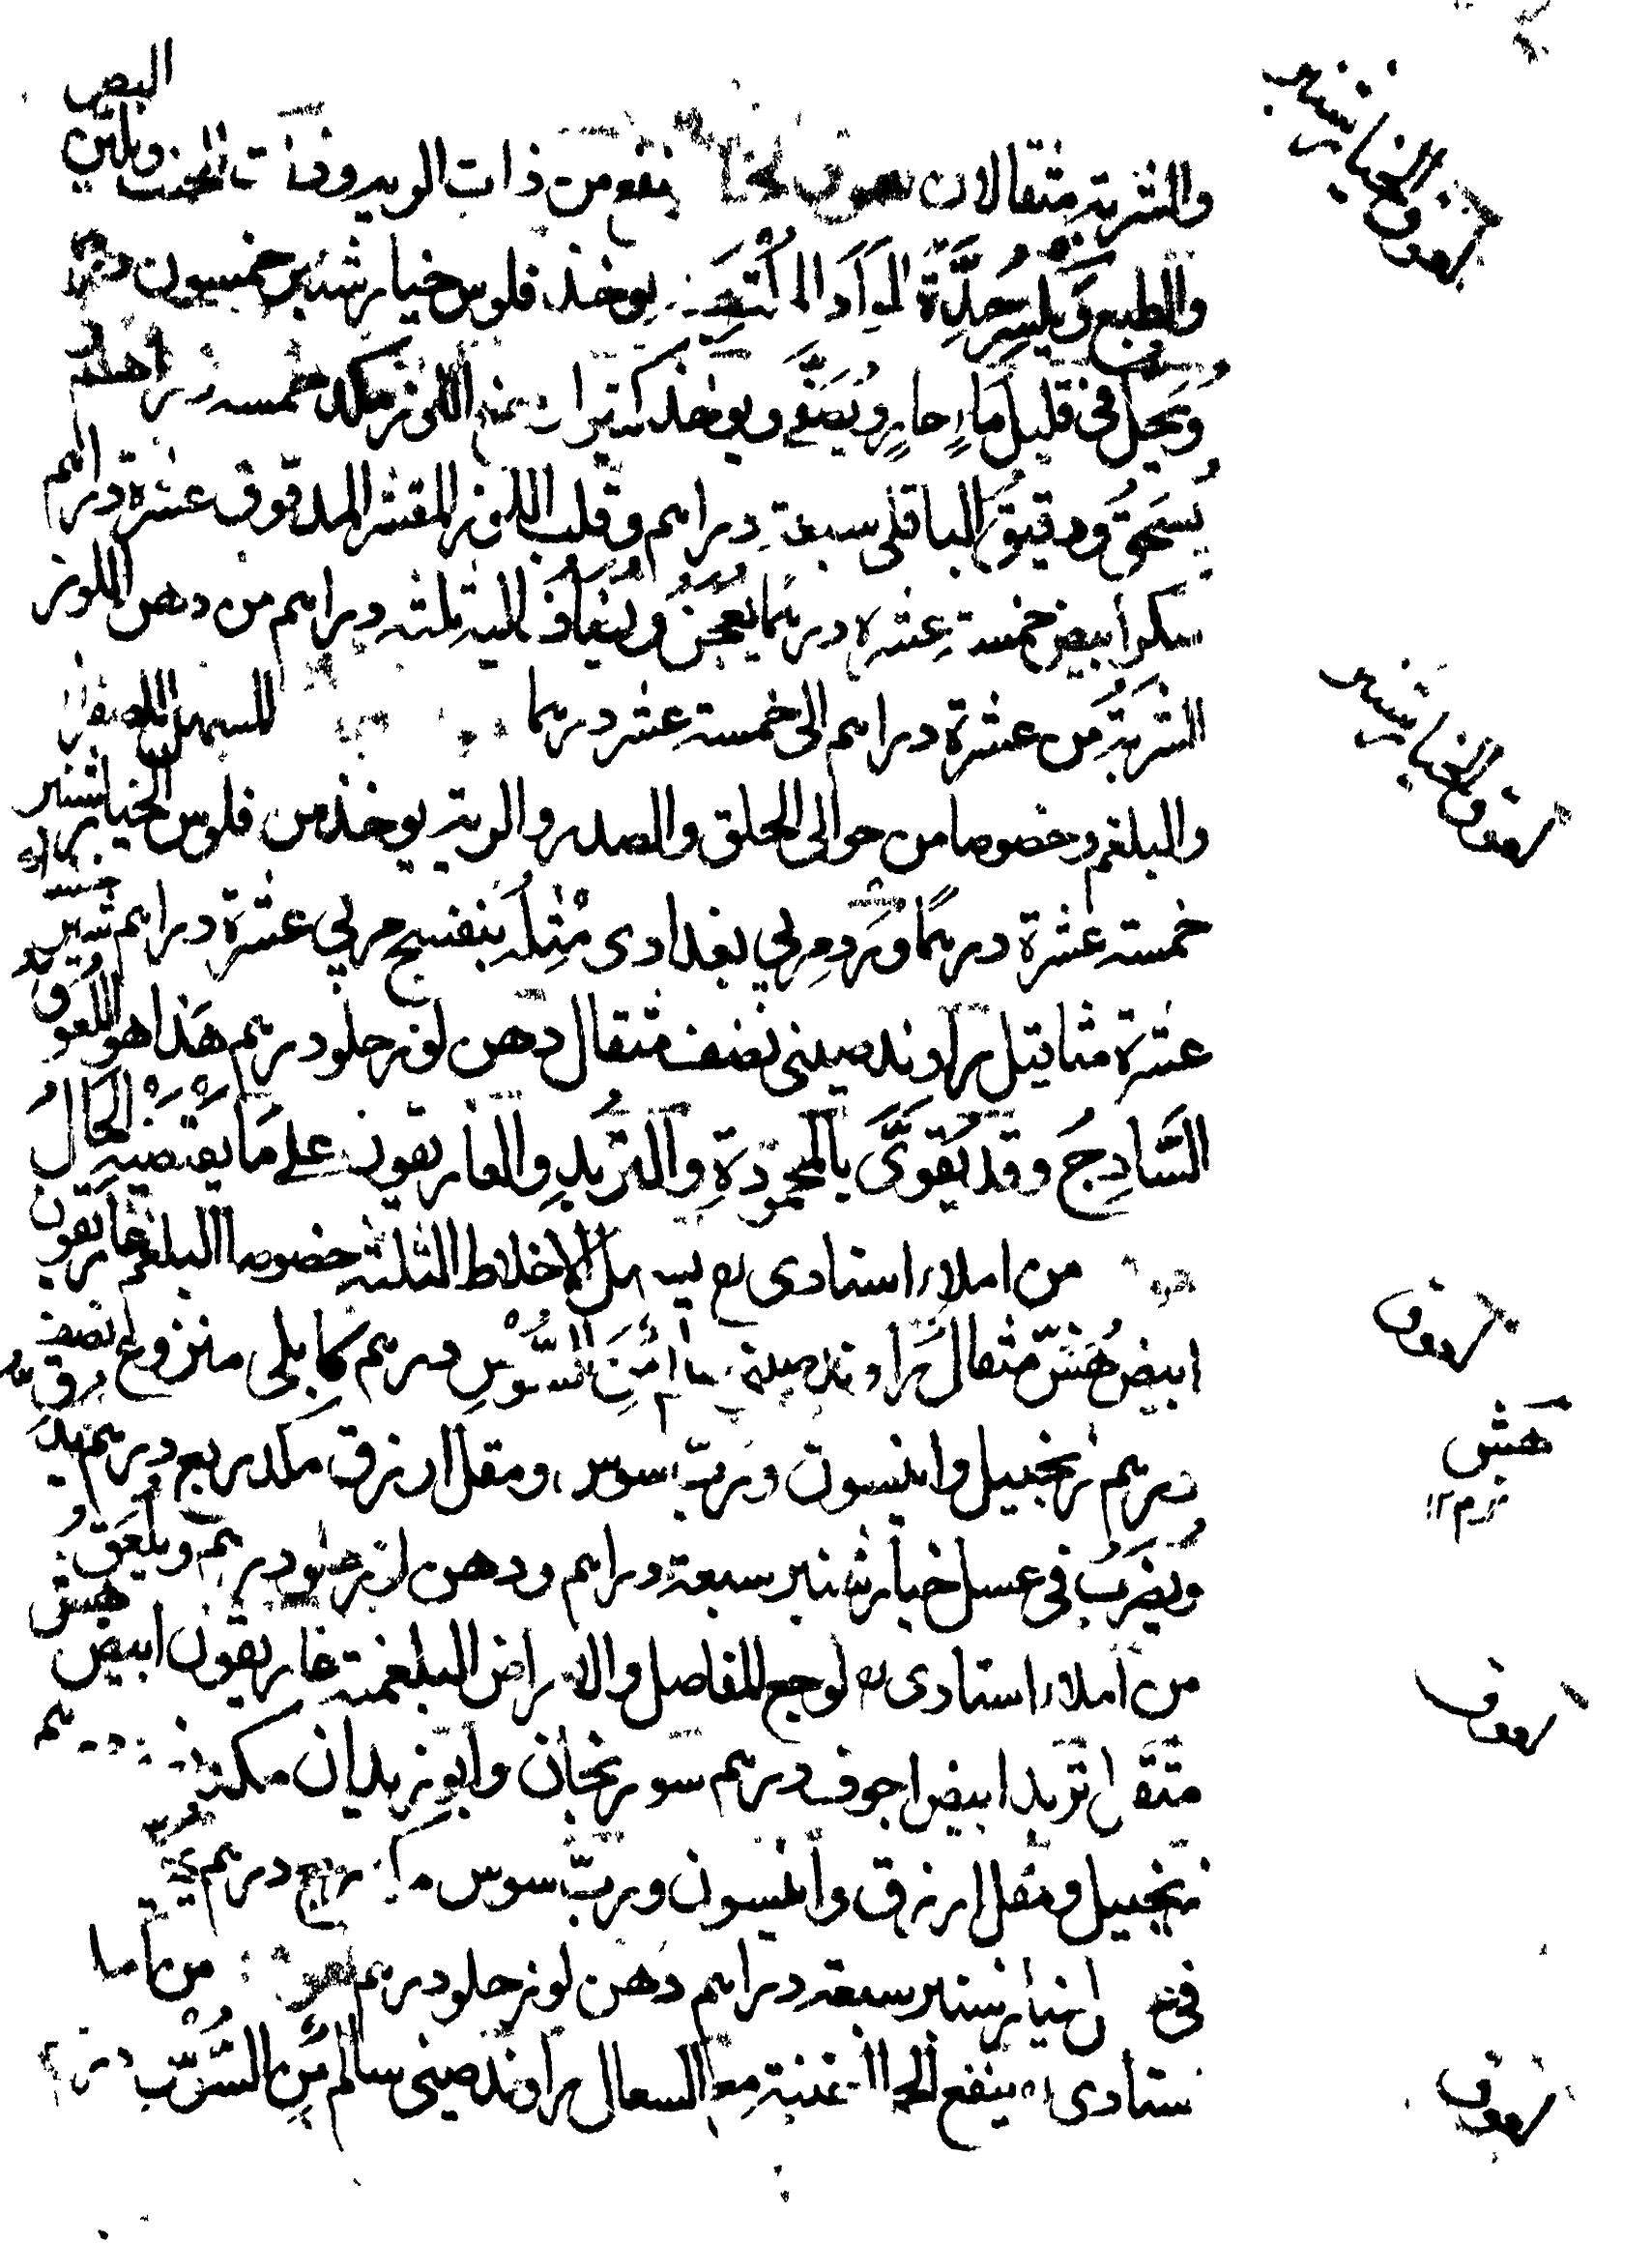 والشربة مثقالان لعوق ينفع من ذات الرية وذات الجنب ويلين البطن
والطبع ويكسر حدة المواد يوخذ فلوس خيار شنبر خمسون درهما
ويحل في قليل ماء حار ويصفى ويوخذ كثيرا وصمغ اللوز مكد خمسه دراهم
يسحق ودقيق الباقلى سبعة دراهم وقلب اللوز المقشر المدقوق عشرة دراهم
سكر ابيض خمسة عشره درهما يعجن ويضاف اليه ثلثه دراهم من دهن اللوز
الشربة من عشرة دراهم الى خمسة عشر درهما المسهل للصفرا
والبلغم وخصوصا من حوالى الحلق والصدر والرية يوخذ من فلوس الخيار شنبر
خمسة عشرة درهما وورد مربي بغدادى مثله بنفسج مربي عشرة دراهم شير خشت
عشرة مثاقيل راوند صينى نصف مثقال دهن لوز حلو درهم هذا هو اللعوق
الساذج وقد يقوى بالمحمودة والتربد والغاريقون على ما يقتضيه الحال
من املاء استادى يسهل الاخلاط الثلثه خصوصا البلغم غاريقون
ابيض هش مثقال راوند صينى سالم من السوس درهم كابلى منزوع نصف
درهم زنجبيل وانيسون ورب سوس ومقل ازرق مكد ربع درهم يدق
ويضرب فى عسل خيار شنبر سبعة دراهم ودهن لوز حلو درهم ويلعق
من املاء استادى لوجع المفاصل والامراض البلغمية غاريقون ابيض هش
مثقال تربد ابيض اجوف درهم سورنجان وابوزيدان مكد درهم
زنجبيل ومقل ازرق وانيسون ورب سوس مكد ربع درهم
فى خيار شنبر سبعة دراهم دهن لوز حلو درهم لعوق من املا
ستادى ينفع مع السعال راوند صينى سالم من السوس
لعوق الخيار شنبر
لعوق الخيار شنبر
لعوق
هش
نرم ١٢
لعوق
لعوق